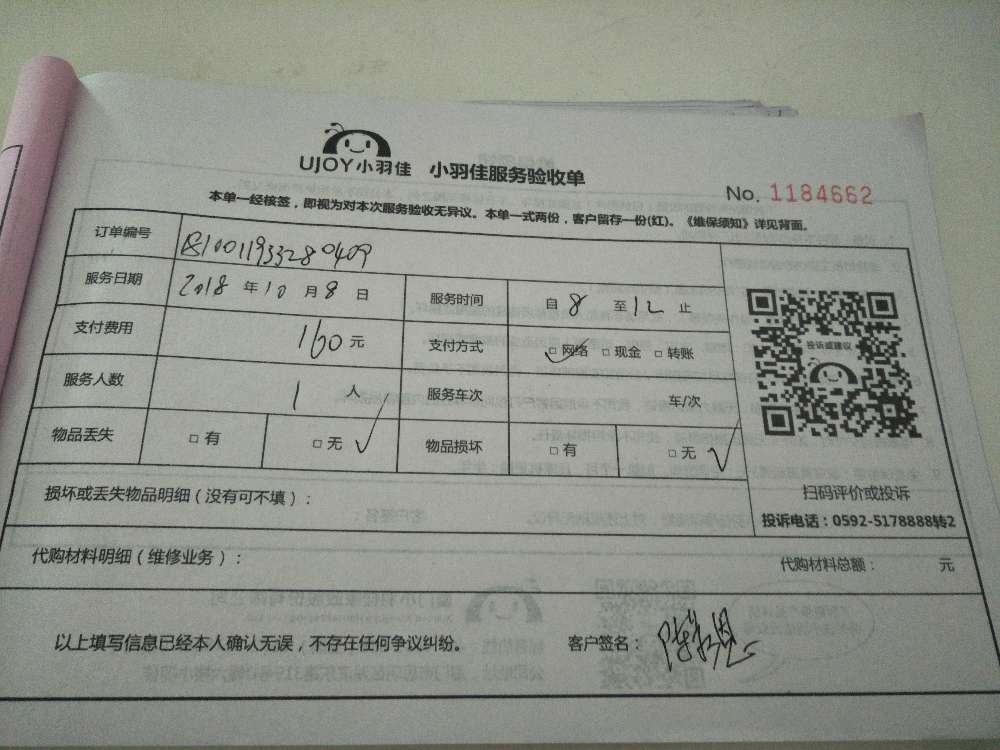 UJOY小羽佳 小羽佳服务验收单
No. 1184662
本单一经核签，即视为对本次服务验收无异议。本单一式两份，客户留存一份(红)。《维保须知》详见背面。
订单编号
服务日期 2018 年 10 月 8 日 服务时间 自 8 至 12 止
支付费用 160 元 支付方式 ☑ 网络 □ 现金 □ 转账
投诉或建议
服务人数 1 人 服务车次 车/次
物品丢失 □ 有 □ 无 ✓ 物品损坏 □ 有 □ 无 ✓
损坏或丢失物品明细（没有可不填）：
扫码评价或投诉
投诉电话：0592-5178888转2
代购材料明细（维修业务）： 代购材料总额： 元
以上填写信息已经本人确认无误，不存在任何争议纠纷。 客户签名：